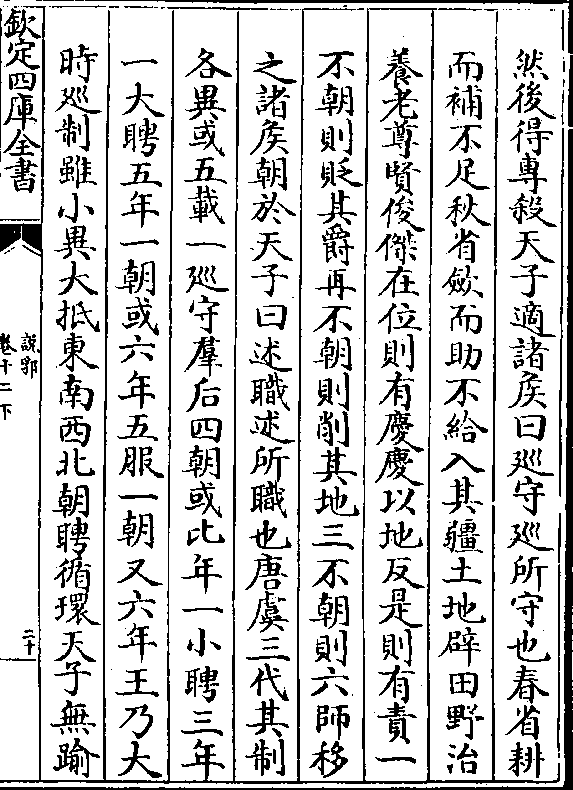 然後得專殺天子適諸侯曰廵守廵所守也春省耕
而補不足秋省斂而助不給入其疆土地辟田野治
養老尊賢俊傑在位則有慶慶以地反是則有責一
不朝則貶其爵再不朝則削其地三不朝則六師移
之諸侯朝於天子曰述職述所職也唐虞三代其制
各異或五載一廵守羣后四朝或比年一小聘三年
一大聘五年一朝或六年五服一朝又六年王乃大
時廵制雖小異大抵東南西北朝聘循環天子無踰
欽定四庫全書
說郛
卷十二下
二十